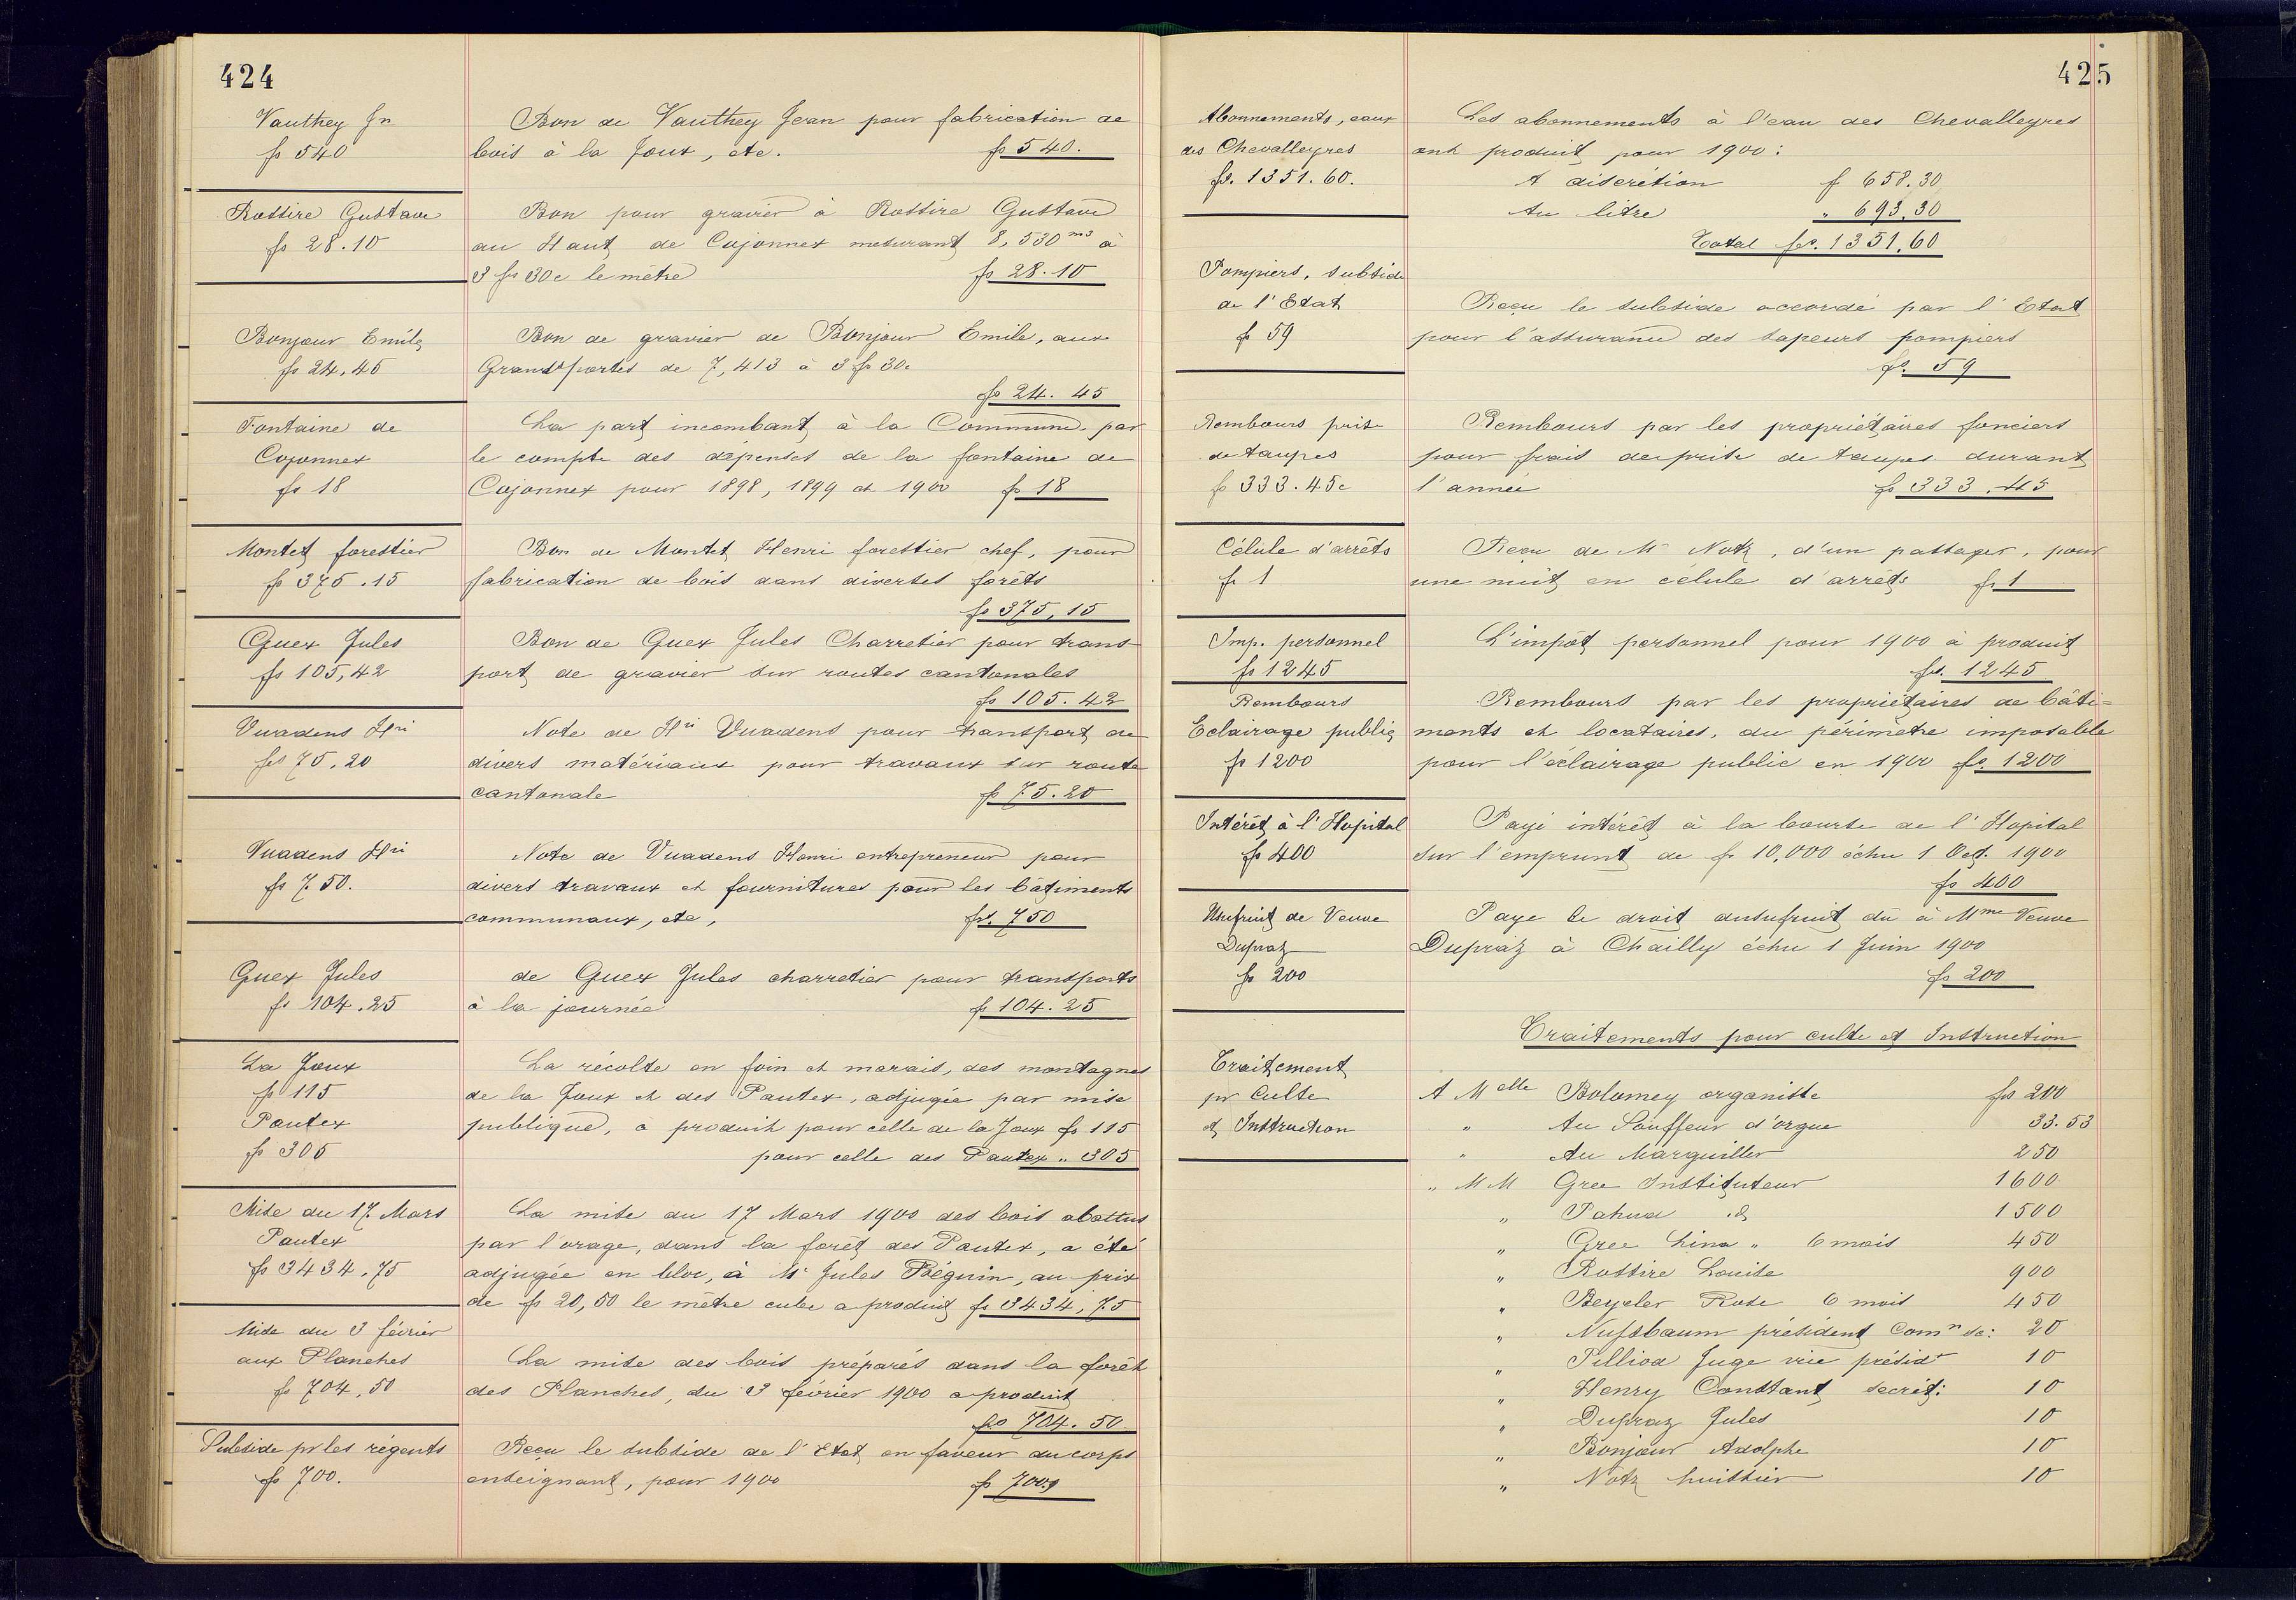 424
Vauthey Jn
fs 540
Bon de Vauthey Jean pour fabrication de
bois à la Joux, etc. fs 540.
Rossire Gustave
fs 28.10
Bon pour gravier à Rossire Gustave
au Haut de Cojonnex mesurant 8,530 m3 à
3 fs 30c le mètre fs 28.10
Bonjour Emile
fs 24.45
Bon de gravier de Bonjour Emile, aux
Grands portes de 7,413 à 3 fs 30c
fs 24.45
Fontaine de
Cojonnex
fs 18
La part incombant à la Commune par
le compte des dépenses de la fontaine de
Cojonnex pour 1898, 1899 et 1900 fs 18
Montet forestier
fs 375.15
Bon de Montet Henri forestier chef, pour
fabrication de bois dans diverses forêts
fs 375,15
Guex Jules
fs 105,42
Bon de Guex Jules Charretier pour trans
port de gravier sur routes cantonales
fs 105.42
Vuadens Hri
fs 75.20
Note de Hri Vuadens pour transport de
divers matériaux pour travaux sur route
cantonale fs 75.20
Vuadens Hri
fs 750.
Note de Vuadens Henri entrepreneur pour
divers travaux et fournitures pour les bâtiments
communaux, etc, frs. 750
Guex Jules
fs 104.25
de Guex Jules charretier pour transports
à la journée fs 104.25
La Joux
fs 115
Pautex
fs 305
La récolte en foin et marais, des montagnes
de la Joux et des Pautex, adjugée par mise
publique, a produit pour celle de la Joux fs 115
pour celle des Pautex „ 305
Mise du 17 Mars
Pautex
fs 3434,75
La mise du 17 Mars 1900 des bois abattus
par l'orage, dans la forêt des Pautex, a été
adjugée en bloc, à Mr Jules Béguin, au prix
de fs 20,50 le mètre cube a produit fs 3434,75
Mise du 3 février
aux Planches
fs 704,50
La mise des bois préparés dans la forêt
des Planches, du 3 février 1900 a produit
fs 704.50
Subside pr les régents
fs 700.
Reçu le subside de l'Etat en faveur du corps
enseignant, pour 1900 fs 700.
425
Abonnements, eaux
des Chevalleyres
fs. 1351.60.
Les abonnements à l'eau des Chevalleyres
ont produit pour 1900:
A discrétion f 658.30
Au litre „ 693.30
Total frs. 1351,60
Pompiers, subside
de l'Etat
fs 59
Reçu le subside accordé par l'Etat
pour l'assurance des sapeurs pompiers
fs. 59
Rembours prise
de taupes
fs 333.45c
Rembours par les propriétaires fonciers
pour frais de prise de taupes durant
l'année fs 333.45
Célule d'arrêts
fr 1
Reçu de Mr Notz, d'un passager, pour
une nuit en célule d'arrêts fr. 1
Imp. personnel
fs 1245
L'impôt personnel pour 1900 à produit
fs. 1245
Rembours
Eclairage public
fs 1200
Rembours par les propriétaires de bâti=
ments et locataires, du périmetre imposable
pour l'éclairage public en 1900 fs. 1200
Intérêt à l'Hopital
fs 400
Payé intérêt à la bourse de l'Hopital
sur l'emprunt de fr 10,000 échu 1 Oct. 1900
fs 400
Usufruit de Veuve
Dupraz
fs 200
Paye le droit d'usufruit dû à Mme Veuve
Dupraz à Chailly échu 1 Juin 1900
fs 200
Traitement
pr Culte
et Instruction
Traitements pour culte et Instruction
A Melle Bolomey organiste frs 200
„ Au Souffleur d'orgue 33.53
„ Au Marguiller 250
„ MM Gree Instituteur 1600
„ Pahud . d 1500
„ Gree Lina „ 6 mois 450
„ Rossire Louise 900
„ Beyeler Rose 6 mois 450
„ Nussbaum président Comn sc: 20
„ Pilliod Juge vice présidt 10
„ Henry Constant secrét: 10
„ Dupraz Jules 10
„ Bonjour Adolphe 10
„ Notz huissier 10